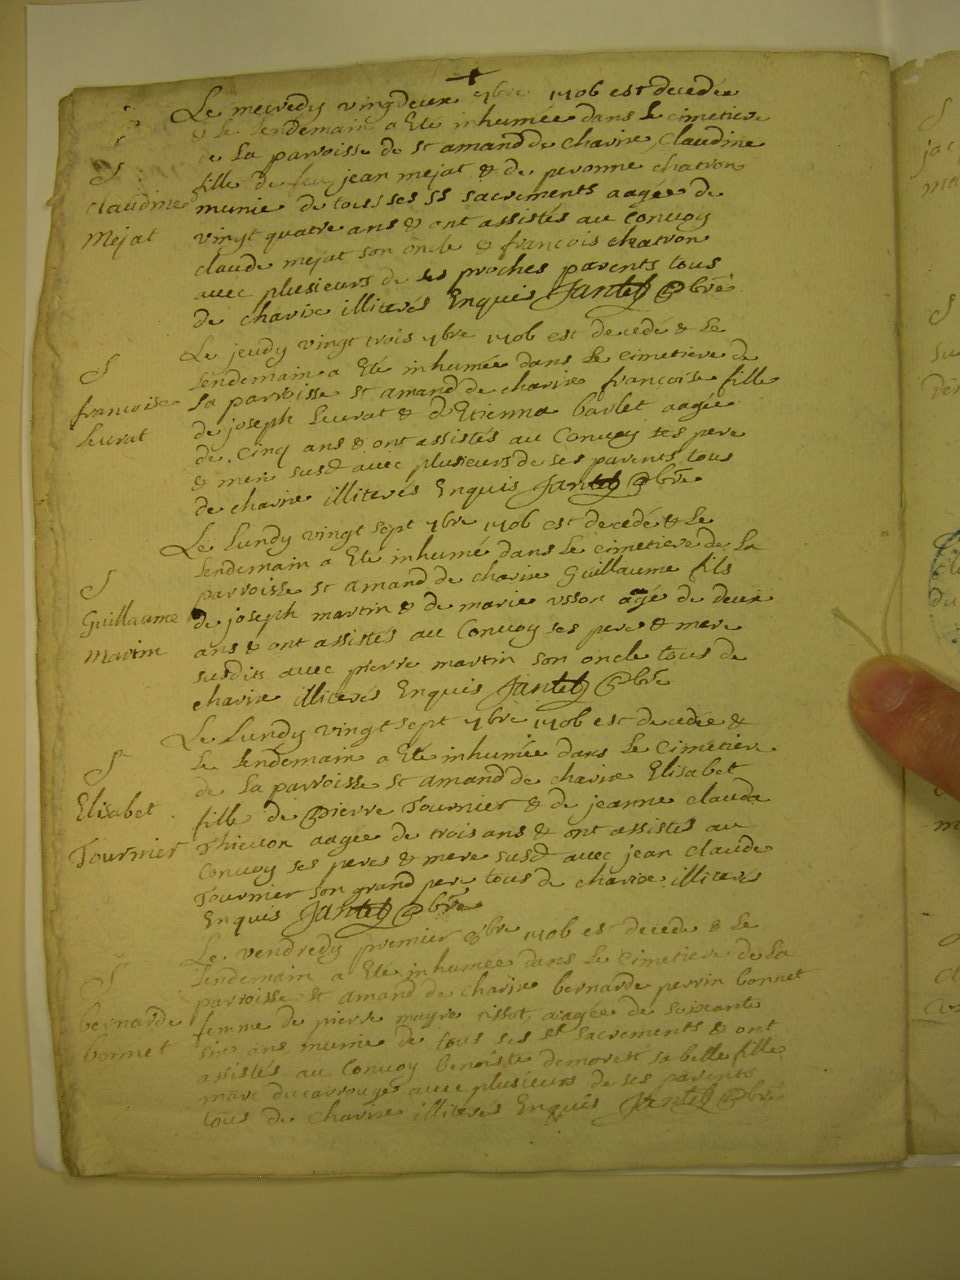 Le mecredy vingdeux 7bre 1706 est decedée
& le lendemain a eté inhumée dans le cimetiere
de la parroisse de st amand de charire Claudine
fille de feu jean mejat & de peronne chatron
munie de tous ses ss sacrements aagée de
vingt quatre ans & ont assistés au convoy
claude mejat son oncle & françois chatron
avec plusieurs de ses proches parents tous
de charire illiterés Enquis Jantet pbre
S
claudine
Mejat
Le jeudy vingt trois 7bre 1706 est decedé & le
lendemain a eté inhumée dans le cimetiere de
la parroisse st amand de charire françoise fille
de joseph Leurat & d'Etienna barlet aagée
de cinq ans & ont assistés au convoy ses pere
& mere susd avec plusieurs de ses parents tous
de charire illiterés Enquis Jantet pbre
S
francoise
Leurat
Le Lundy vingt sept 7bre 1706 est decedé & le
lendemain a eté inhumé dans le cimetiere de la
parroisse st amand de charire Guillaume fils
de joseph martin & de marie usson agé de deux
ans & ont assistés au convoy ses pere & mere
susdits avec pierre martin son oncle tous de
charire illiterés Enquis Jantet pbre
S
Guillaume
Martin
Le Lundy vingt sept 7bre 1706 est decedée &
le lendemain a eté inhumée dans le cimetiere
de la parroisse st amand de charire Elisabet
fille de Pierre Tournier & de jeanne claude
Thievon aagée de trois ans & ont assistés au
convoy ses peres & mere susd avec jean claude
Tournier son grand pere tous de charire illiterés
Enquis Jantet pbre
S
Elisabet
Tournier
Le vendredy premier 8bre 1706 est decedé & le
lendemain a eté inhumée dans le cimetiere de la
parroisse st amand de charire bernarde perrin bonnet
femme de pierre mayre tissot aagée de soixante
six ans munie de tous ses st sacrements & ont
assistés au convoy benoiste demorest sa belle fille
marc ducarrouge avec plusieurs de ses parents
tous de charire illiterés Enquis Jantet pbre
S
bernarde
bonnet